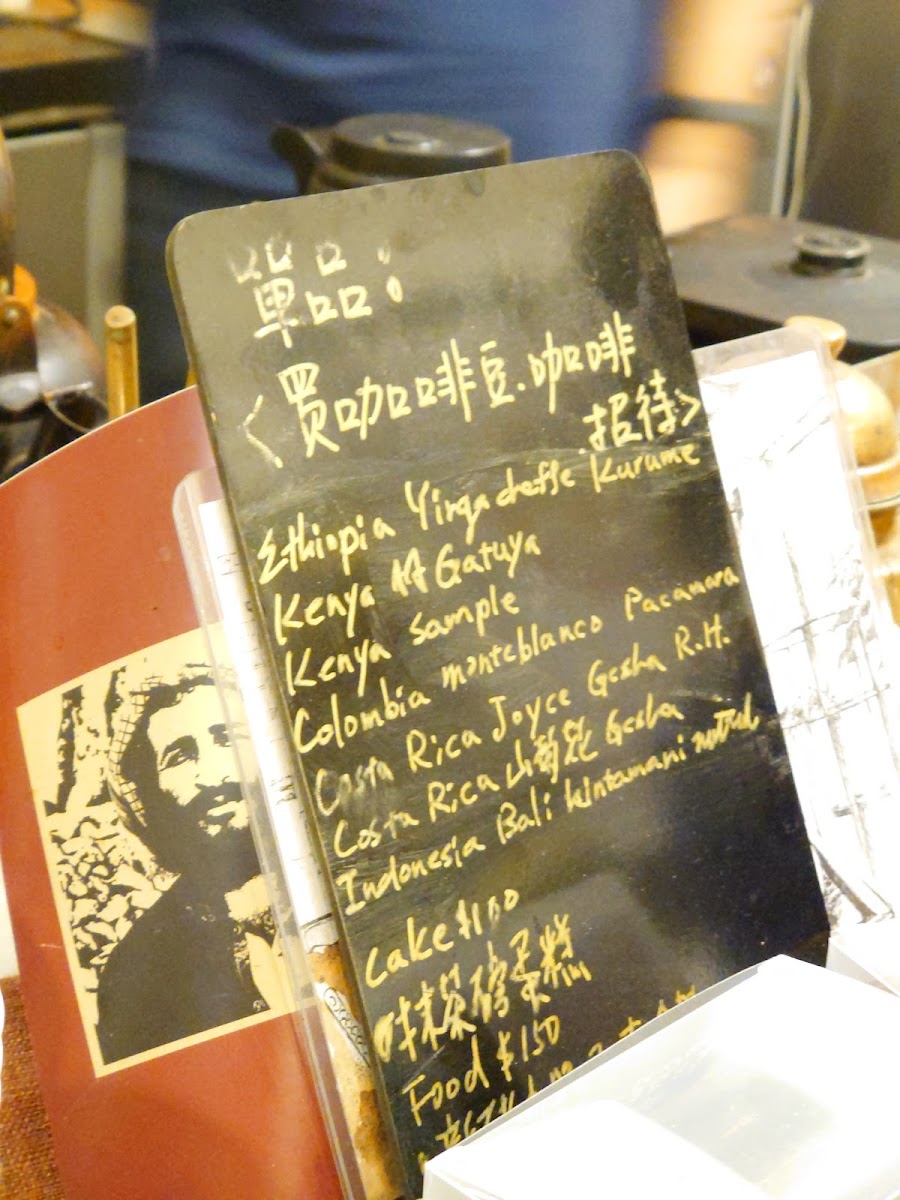 單品:
<買咖啡豆.咖啡
招待>
Ethiopia Yirgacheffe Kurume
Kenya AA Gatuya
Kenya Sample
Colombia monteblanco Pacamara
Costa Rica Joyce Gesha R.H.
Costa Rica 山菊花 Gesha
Indonesia Bali kintamani
Cake $100
抹茶磅蛋糕
Food $150